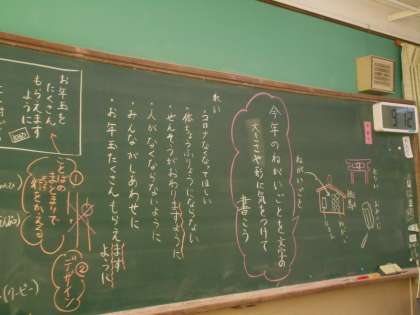 ねがいごと
今年のねがいごとを文字の
大きさや形に気をつけて
書こう
れい
・コロナなくなってほしい
・体ちょうふりょうにならない
・せんそうがおわりますように
・人がなくならないように
・みんながしあわせに
・お年玉たくさんもらえますように
お年玉を
たくさん
もらえます
ように
①
ことばの
まとまりで
行をかえる
②
デザイン
(クーピー)